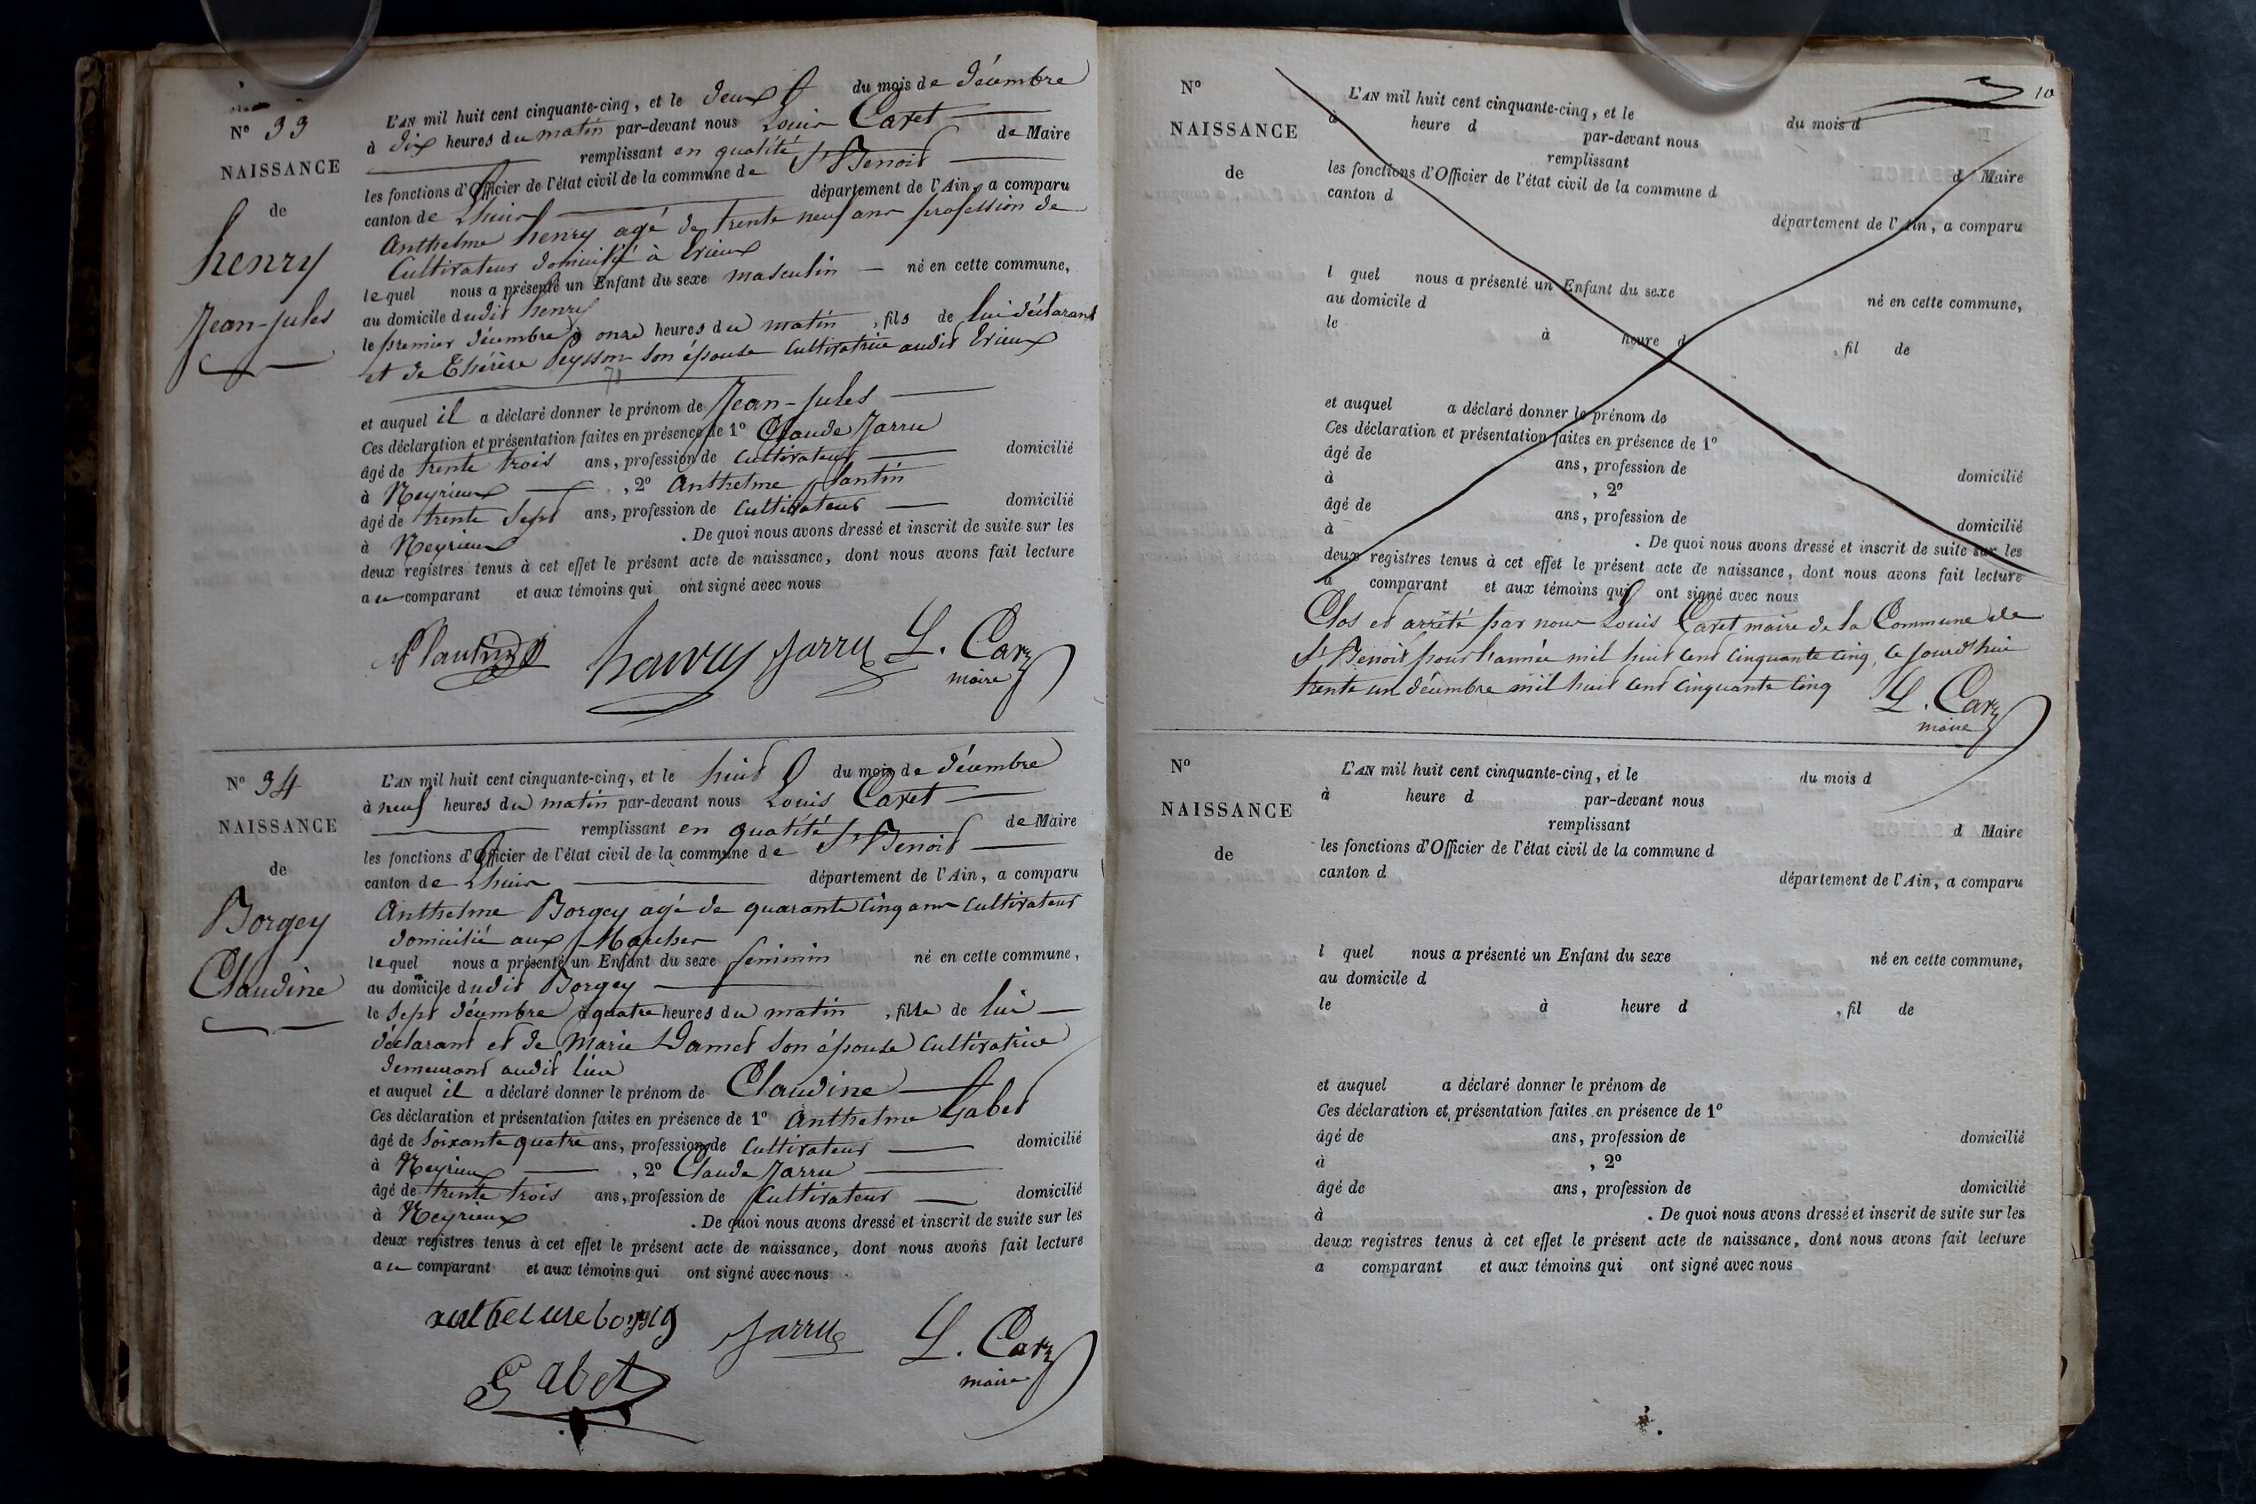 N° 33
NAISSANCE
de
henry
Jean-Jules
L'AN mil huit cent cinquante-cinq, et le deux du mois de décembre
à dix heures du matin par-devant nous Louis Caret
remplissant en qualité de Maire
les fonctions d'Officier de l'état civil de la commune de St Benoit
canton de Lhuis département de l'Ain, a comparu
Anthelme henry agé de trente neuf ans profession de
Cultivateur domicilié à Crieux
lequel nous a présenté un Enfant du sexe masculin né en cette commune,
au domicile dudit henry
le premier décembre à onze heures du matin, fils de lui déclarant
et de Thérèse Peysson son épouse Cultivatrice audit Crieux
et auquel il a déclaré donner le prénom de Jean-Jules
Ces déclaration et présentation faites en présence de 1° Claude Jarru
âgé de trente trois ans, profession de Cultivateur domicilié
à Neyrieux, 2° Anthelme Plantin
âgé de trente sept ans, profession de Cultivateur domicilié
à Neyrieux. De quoi nous avons dressé et inscrit de suite sur les
deux registres tenus à cet effet le présent acte de naissance, dont nous avons fait lecture
au comparant et aux témoins qui ont signé avec nous
Plantin henry Jarru L. Caret
maire
N° 34
NAISSANCE
de
Borgey
Claudine
L'AN mil huit cent cinquante-cinq, et le huit du mois de décembre
à neuf heures du matin par-devant nous Louis Caret
remplissant en qualité de Maire
les fonctions d'Officier de l'état civil de la commune de St Benoit
canton de Lhuis département de l'Ain, a comparu
Anthelme Borgey agé de quarante cinq ans Cultivateur
domicilié aux Marches
lequel nous a présenté un Enfant du sexe feminin né en cette commune,
au domicile dudit Borgey
le Sept décembre à quatre heures du matin, fille de lui
déclarant et de Marie Damet son épouse Cultivatrice
demeurant audit lieu
et auquel il a déclaré donner le prénom de Claudine
Ces déclaration et présentation faites en présence de 1° Anthelme Gabet
âgé de soixante quatre ans, profession de Cultivateur domicilié
à Neyrieux, 2° Claude Jarru
âgé de trente trois ans, profession de Cultivateur domicilié
à Neyrieux. De quoi nous avons dressé et inscrit de suite sur les
deux registres tenus à cet effet le présent acte de naissance, dont nous avons fait lecture
au comparant et aux témoins qui ont signé avec nous
Jarru L. Caret
maire
Gabet
10
N°
NAISSANCE
de
L'AN mil huit cent cinquante-cinq, et le du mois d
à heure d par-devant nous
remplissant d Maire
les fonctions d'Officier de l'état civil de la commune d
canton d département de l'Ain, a comparu
l quel nous a présenté un Enfant du sexe né en cette commune,
au domicile d
le à heure d, fil de
et auquel a déclaré donner le prénom de
Ces déclaration et présentation faites en présence de 1°
âgé de ans, profession de domicilié
à, 2°
âgé de ans, profession de domicilié
à. De quoi nous avons dressé et inscrit de suite sur les
deux registres tenus à cet effet le présent acte de naissance, dont nous avons fait lecture
a comparant et aux témoins qui ont signé avec nous
Clos et arrêté par nous Louis Caret maire de la Commune de
St Benoit pour l'année mil huit cent cinquante cinq, ce jourd'hui
trente un décembre mil huit cent cinquante cinq
L. Caret
maire
N°
NAISSANCE
de
L'AN mil huit cent cinquante-cinq, et le du mois d
à heure d par-devant nous
remplissant d Maire
les fonctions d'Officier de l'état civil de la commune d
canton d département de l'Ain, a comparu
l quel nous a présenté un Enfant du sexe né en cette commune,
au domicile d
le à heure d, fil de
et auquel a déclaré donner le prénom de
Ces déclaration et présentation faites en présence de 1°
âgé de ans, profession de domicilié
à, 2°
âgé de ans, profession de domicilié
à. De quoi nous avons dressé et inscrit de suite sur les
deux registres tenus à cet effet le présent acte de naissance, dont nous avons fait lecture
a comparant et aux témoins qui ont signé avec nous